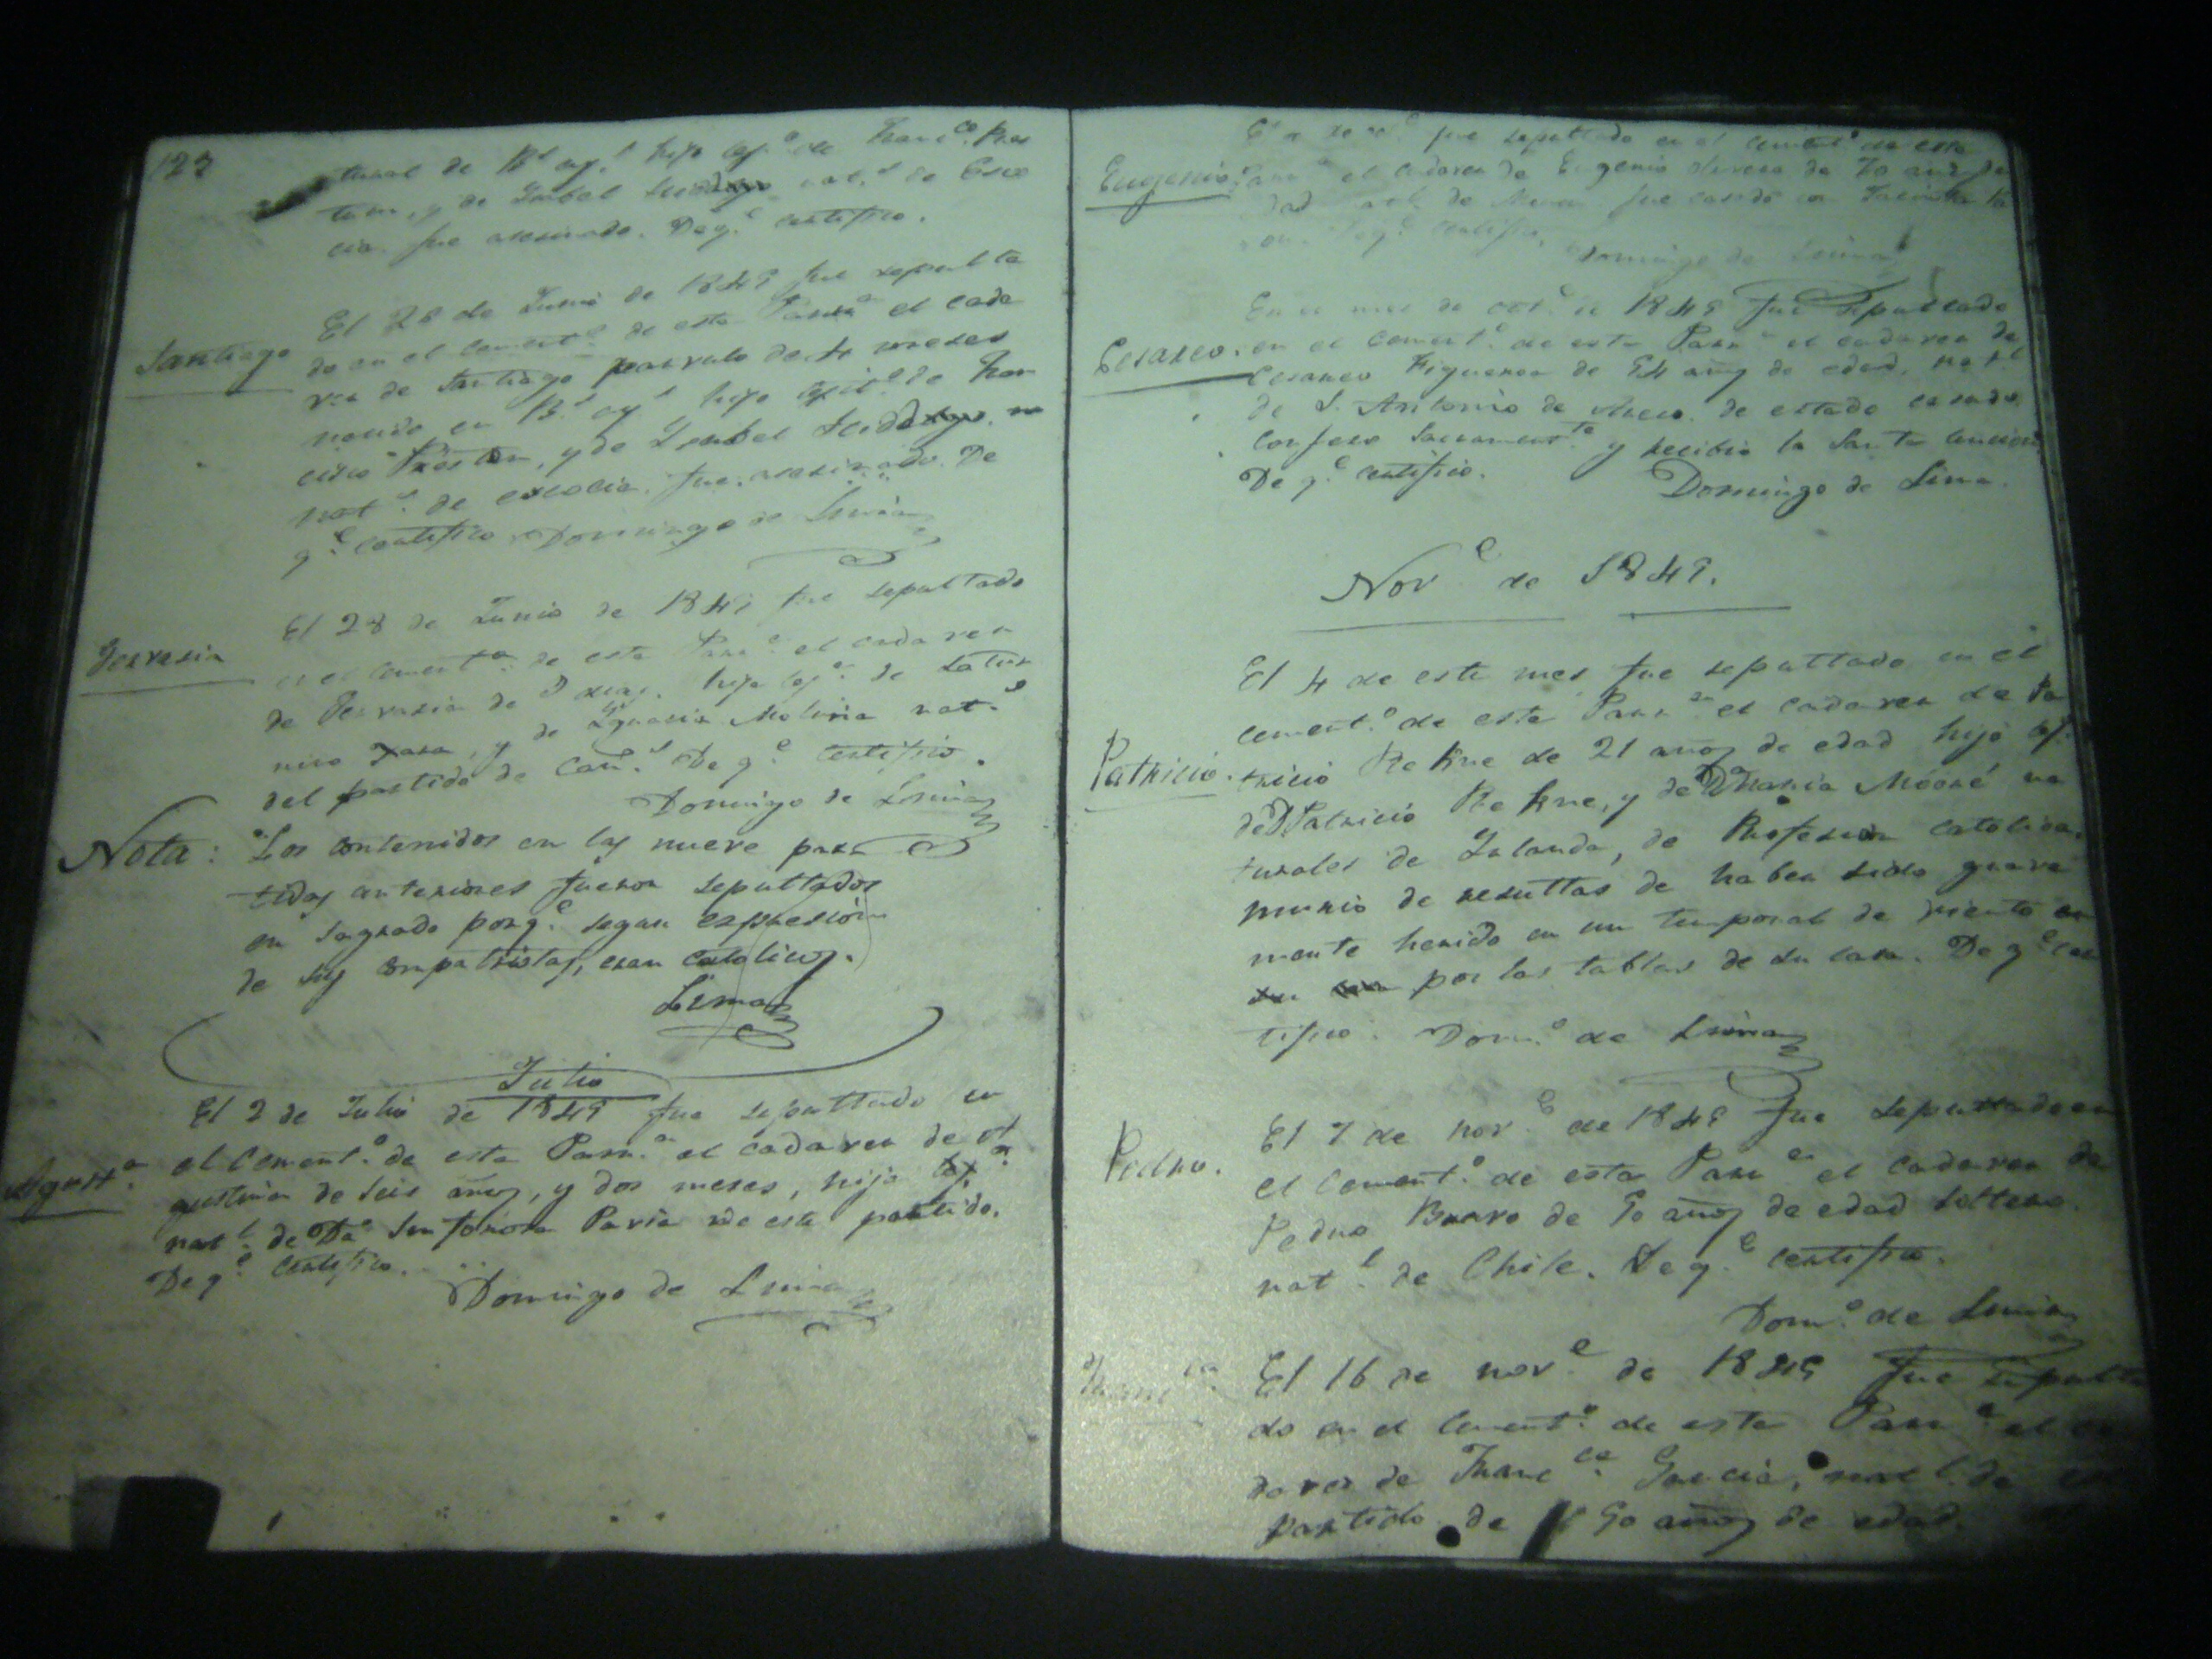 127
tural de B.s ay.s hijo leg.o de Franc.co Pres
ton, y de Isabel nat.s de Esco
cia. fue asesinado. De q.e certifico.
Santiago
El 28 de Junio de 1849 fue sepulta
do en el Cement.o de esta Parrª el cada
ver de Santiago parvulo de 4 meses
nacido en B.s ay.s hijo legit.o de Fran
cisco Preston, y de Isabel
nat.s de escocia. fue asesinado. De
q.e certifico Domingo de Lima
Jervasia
El 28 de Junio de 1849 fue sepultado
en el Cement.o de esta Parr.a el cadaver
de Jervasia de 8 dias. hija leg.a de Satur
nino Jara, y de Ygnasia Molina nat.s
del partido de Cañ.s De q.e certifico.
Domingo de Lima
Nota: Los contenidos en las nueve par
tidas anteriores fueron sepultados
en sagrado porq.e segun espresión
de sus compatriotas, eran catolicos.
Lima
Julio
Agust.a
El 2 de Julio de 1849 fue sepultado en
el Cement.o de esta Parr.a el cadaver de A
gustina de seis años, y dos meses, hija
nat.l de Da Sinforosa Paria de este partido.
De q.e Certifico.
Domingo de Lima
fue sepultado en el Cement.o de esta
Eugenio
Parr.a el cadaver de Eugenio de 70 años de
edad nat.l de fue casado con Jacinta
De q.e certifico.
Domingo de Lima
En el mes de oct.e de 1849 fue sepultado
Cesareo.
en el Cement.o de esta Parr.a el cadaver de
Cesareo Figueroa de 54 años de edad, nat.l
de S. Antonio de Areco. de estado casado
Confeso Sacrament.te y recibio la Santa Uncion
De q.e certifico.
Domingo de Lima.
Nov.e de 1849.
El 4 de este mes fue sepultado en el
cement.o de esta Parr.a el cadaver de Pa
Patricio.
tricio de 21 años de edad hijo leg.o
de D Patricio y de Da Maria Mooré na
turales de Irlanda, de Profesion catolica.
murio de resultas de haber sido grave
mente herido en un temporal de viento
por las tablas de su casa. De q.e cer
tifico. Dom.o de Lima
Pedro.
El 7 de nov.e de 1849 fue sepultado en
el Cement.o de esta Parr.a el cadaver de
Pedro Bravo de 90 años de edad soltero.
nat.l de Chile. De q.e certifico.
Dom.o de Lima
Franc.ca
El 16 de nov.e de 1849 fue sepulta
do en el Cement.o de esta Parr.a el ca
daver de Franc.ca Garcia, nat.l de
partido de 50 años de edad.